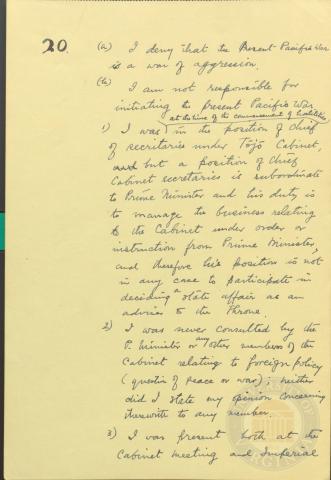 20.
(a) I deny that the Present Pacific War
is a war of aggression.
(b)
I am not responsible for
initiating the present Pacific War
at the time of the commencement of hostilities
1) I was in the position of chief
of secretaries under Tōjō Cabinet,
and but a position of Chief
Cabinet secretaries is subordinate
to Prime Minister and his duty is
to manage the business relating
to the Cabinet under order or
instruction from Prime Minister,
and therefore his position is not
in any case to participate in
deciding a state affair as an
adviser to the Throne.
2) I was never consulted by the
P. Minister or any other members of the
Cabinet relating to foreign policy
(question of peace or war); neither
did I state my opinion concerning
therewith to any member.
3) I was present both at the
Cabinet meeting and Imperial